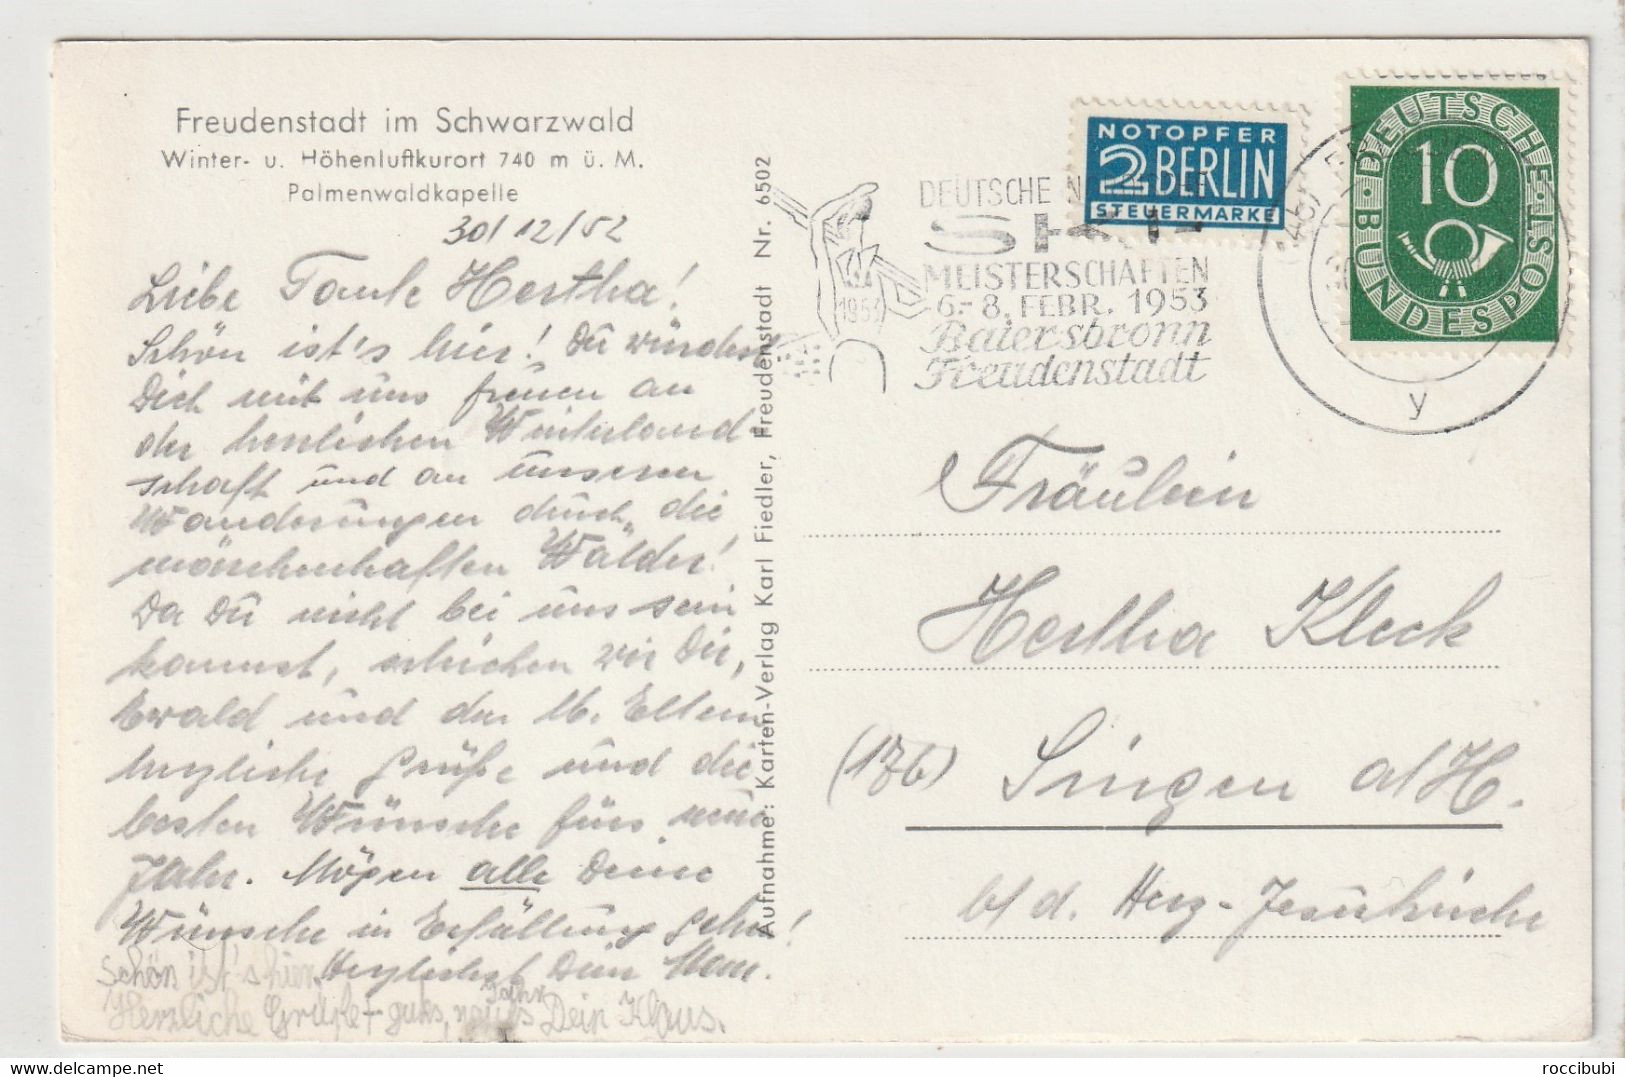 Freudenstadt im Schwarzwald
Winter- u. Höhenluftkurort 740 m ü. M.
Palmenwaldkapelle
30/12/52
Liebe Tante Hertha!
Schön ist's hier! Du würdest
Dich mit uns freuen an
der herrlichen Winterland-
schaft und an unseren
Wanderungen durch die
märchenhaften Wälder!
Da Du nicht bei uns sein
kannst, schicken wir Dir,
Ewald und den lb. Eltern
herzliche Grüße und die
besten Wünsche fürs neue
Jahr. Mögen alle Deine
Wünsche in Erfüllung gehn!
Herzlichst Dein
Schön ist's hier.
Herzliche Grüße + gutes, neues Jahr Dein Klaus.
Aufnahme: Karten-Verlag Karl Fiedler, Freudenstadt Nr. 6502
DEUTSCHE
SKI-
MEISTERSCHAFTEN
6.-8. FEBR. 1953
Baiersbronn
Freudenstadt
1953
NOTOPFER
2 BERLIN
STEUERMARKE
DEUTSCHE BUNDESPOST
10
y
Fräulein
Hertha Kleck
(17b) Singen a/H.
b/d. Herz-Jesukirche
roccibubi